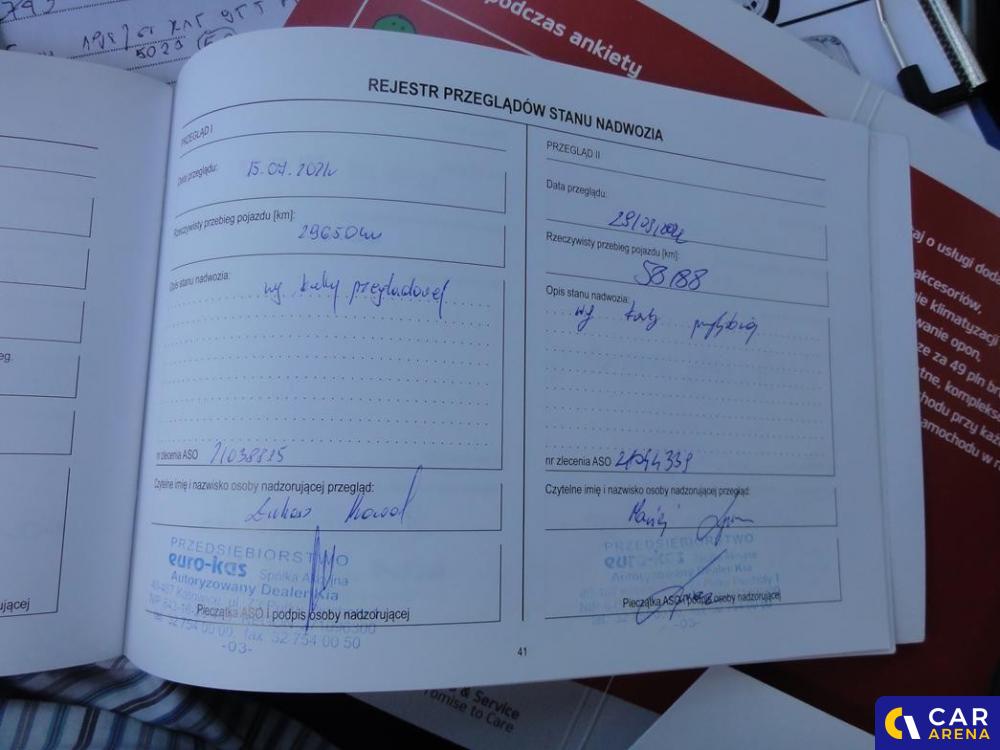 podczas ankiety
REJESTR PRZEGLĄDÓW STANU NADWOZIA
PRZEGLĄD I
Data przeglądu:
15.07.2021r
Rzeczywisty przebieg pojazdu [km]:
29650km
Opis stanu nadwozia:
wg karty przeglądowej
nr zlecenia ASO 21038815
Czytelne imię i nazwisko osoby nadzorującej przegląd:
Łukasz
PRZEDSIĘBIORSTWO
euro-kas Spółka Akcyjna
Autoryzowany Dealer Kia
Pieczątka ASO i podpis osoby nadzorującej
tel. 32 754 00 00, fax 32 754 00 50
-03-
PRZEGLĄD II
Data przeglądu:
Rzeczywisty przebieg pojazdu [km]:
58188
Opis stanu nadwozia:
wg karty
nr zlecenia ASO
Czytelne imię i nazwisko osoby nadzorującej przegląd:
Maciej
PRZEDSIĘBIORSTWO
euro-kas
Autoryzowany Dealer Kia
Pieczątka ASO i podpis osoby nadzorującej
-03-
41
eg.
ującej
aj o usługi doda
akcesoriów,
nie klimatyzacji
wanie opon,
ze za 49 pln br
tne, kompleks
chodu przy każ
amochodu w r
& Service
romise to Care
CAR
ARENA